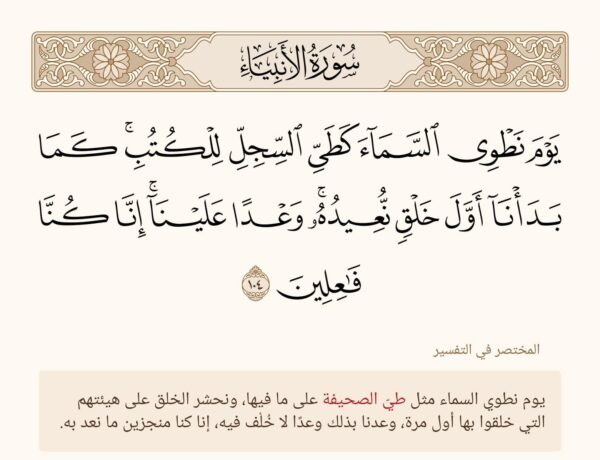 سُورَةُ الأَنبِيَاءِ
يَوۡمَ نَطۡوِي ٱلسَّمَآءَ كَطَيِّ ٱلسِّجِلِّ لِلۡكُتُبِۚ كَمَا
بَدَأۡنَآ أَوَّلَ خَلۡقٖ نُّعِيدُهُۥۚ وَعۡدًا عَلَيۡنَآۚ إِنَّا كُنَّا
فَٰعِلِينَ ١٠٤
المختصر في التفسير
يوم نطوي السماء مثل طيّ الصحيفة على ما فيها، ونحشر الخلق على هيئتهم
التي خلقوا بها أول مرة، وعدنا بذلك وعدًا لا خُلْف فيه، إنا كنا منجزين ما نعد به.